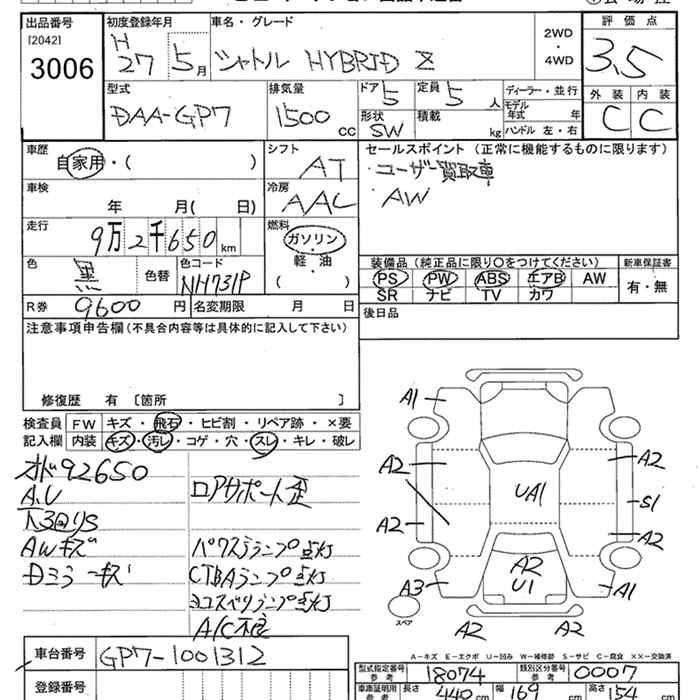 出品番号
[2042]
3006
初度登録年月
H 27 5月
車名・グレード
シャトル HYBRID Z
2WD
・
4WD
評価点
3.5
外装 内装
C C
型式
DAA-GP7
排気量
1500 cc
ドア 5
形状 SW
定員 5 人
積載 kg
ディーラー・並行
モデル年式 年
ハンドル 左・右
車歴
自家用・( )
シフト
AT
セールスポイント(正常に機能するものに限ります)
ユーザー買取車
AW
車検
年 月( 日)
冷房
AAC
走行
9万2千650km
燃料
ガソリン・
軽・油
( )
色
黒
色替
色コード
NH731P
装備品(純正品に限り〇をつけてください)
PS PW ABS エアB AW
SR ナビ TV カワ
新車保証書
有・無
R券 9600円
名変期限 月 日
後日品
注意事項申告欄(不具合内容等は具体的に記入して下さい)
修復歴 有 〔箇所 〕
検査員
記入欄
FW キズ・飛石・ヒビ割・リペア跡・×要
内装 キズ・汚レ・コゲ・穴・スレ・キレ・破レ
オド92650
A.U
下廻りS
AWキズ
Dミラーキズ
ロアサポート歪
パワステランプ点灯
CTBAランプ点灯
ヨコスベリランプ点灯
A/C不良
A1
A2
A2
A3
UA1
A2
U1
A2
S1
A2
A1
スペア
A2 A2
A-キズ E-エクボ U-凹み W-補修跡 S-サビ C-腐食 ××-交換済
車台番号 GP7-1001312
登録番号
型式指定番号
参考
18074
類別区分番号
参考
0007
車庫証明用
参考
長さ 440cm
幅 169cm
高さ 154cm